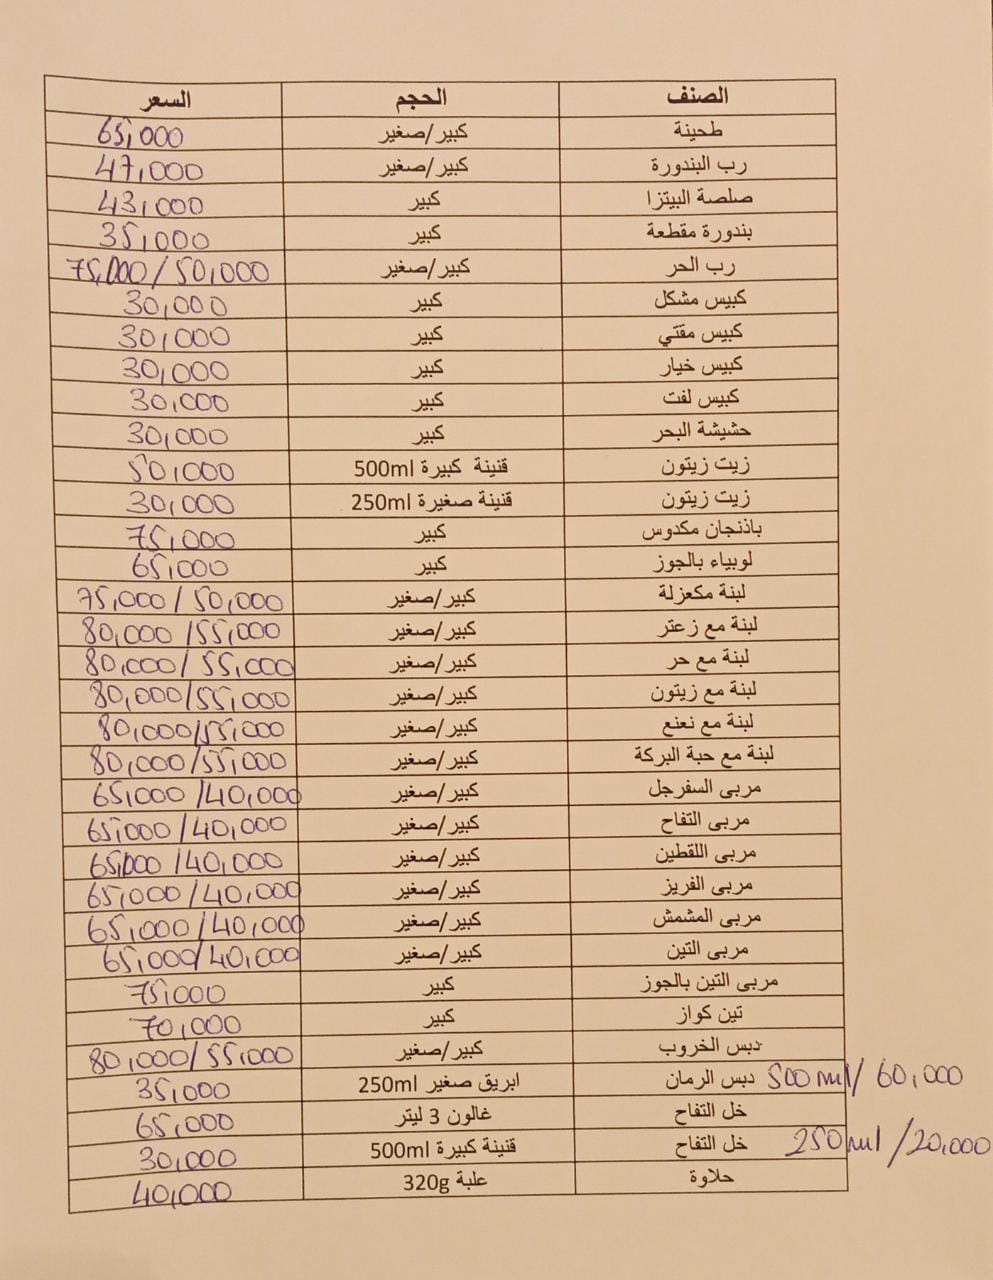 الصنف الحجم السعر
طحينة كبير/صغير 65,000
رب البندورة كبير/صغير 47,000
صلصة البيتزا كبير 43,000
بندورة مقطعة كبير 35,000
رب الحر كبير/صغير 75,000 / 50,000
كبيس مشكل كبير 30,000
كبيس مقتي كبير 30,000
كبيس خيار كبير 30,000
كبيس لفت كبير 30,000
حشيشة البحر كبير 30,000
زيت زيتون قنينة كبيرة 500ml 50,000
زيت زيتون قنينة صغيرة 250ml 30,000
باذنجان مكدوس كبير 75,000
لوبياء بالجوز كبير 65,000
لبنة مكعزلة كبير/صغير 75,000 / 50,000
لبنة مع زعتر كبير/صغير 80,000 /55,000
لبنة مع حر كبير/صغير 80,000/ 55,000
لبنة مع زيتون كبير/صغير 80,000/55,000
لبنة مع نعنع كبير/صغير 80,000/55,000
لبنة مع حبة البركة كبير/صغير 80,000 /55,000
مربى السفرجل كبير/صغير 65,000 /40,000
مربى التفاح كبير/صغير 65,000 /40,000
مربى اللقطين كبير/صغير 65,000 /40,000
مربى الفريز كبير/صغير 65,000 /40,000
مربى المشمش كبير/صغير 65,000 /40,000
مربى التين كبير/صغير 65,000/40,000
مربى التين بالجوز كبير 75,000
تين كواز كبير 70,000
دبس الخروب كبير/صغير 80,000/55,000
500ml/ 60,000 دبس الرمان ابريق صغير 250ml 35,000
خل التفاح غالون 3 ليتر 65,000
250ml /20,000 خل التفاح قنينة كبيرة 500ml 30,000
حلاوة علبة 320g 40,000